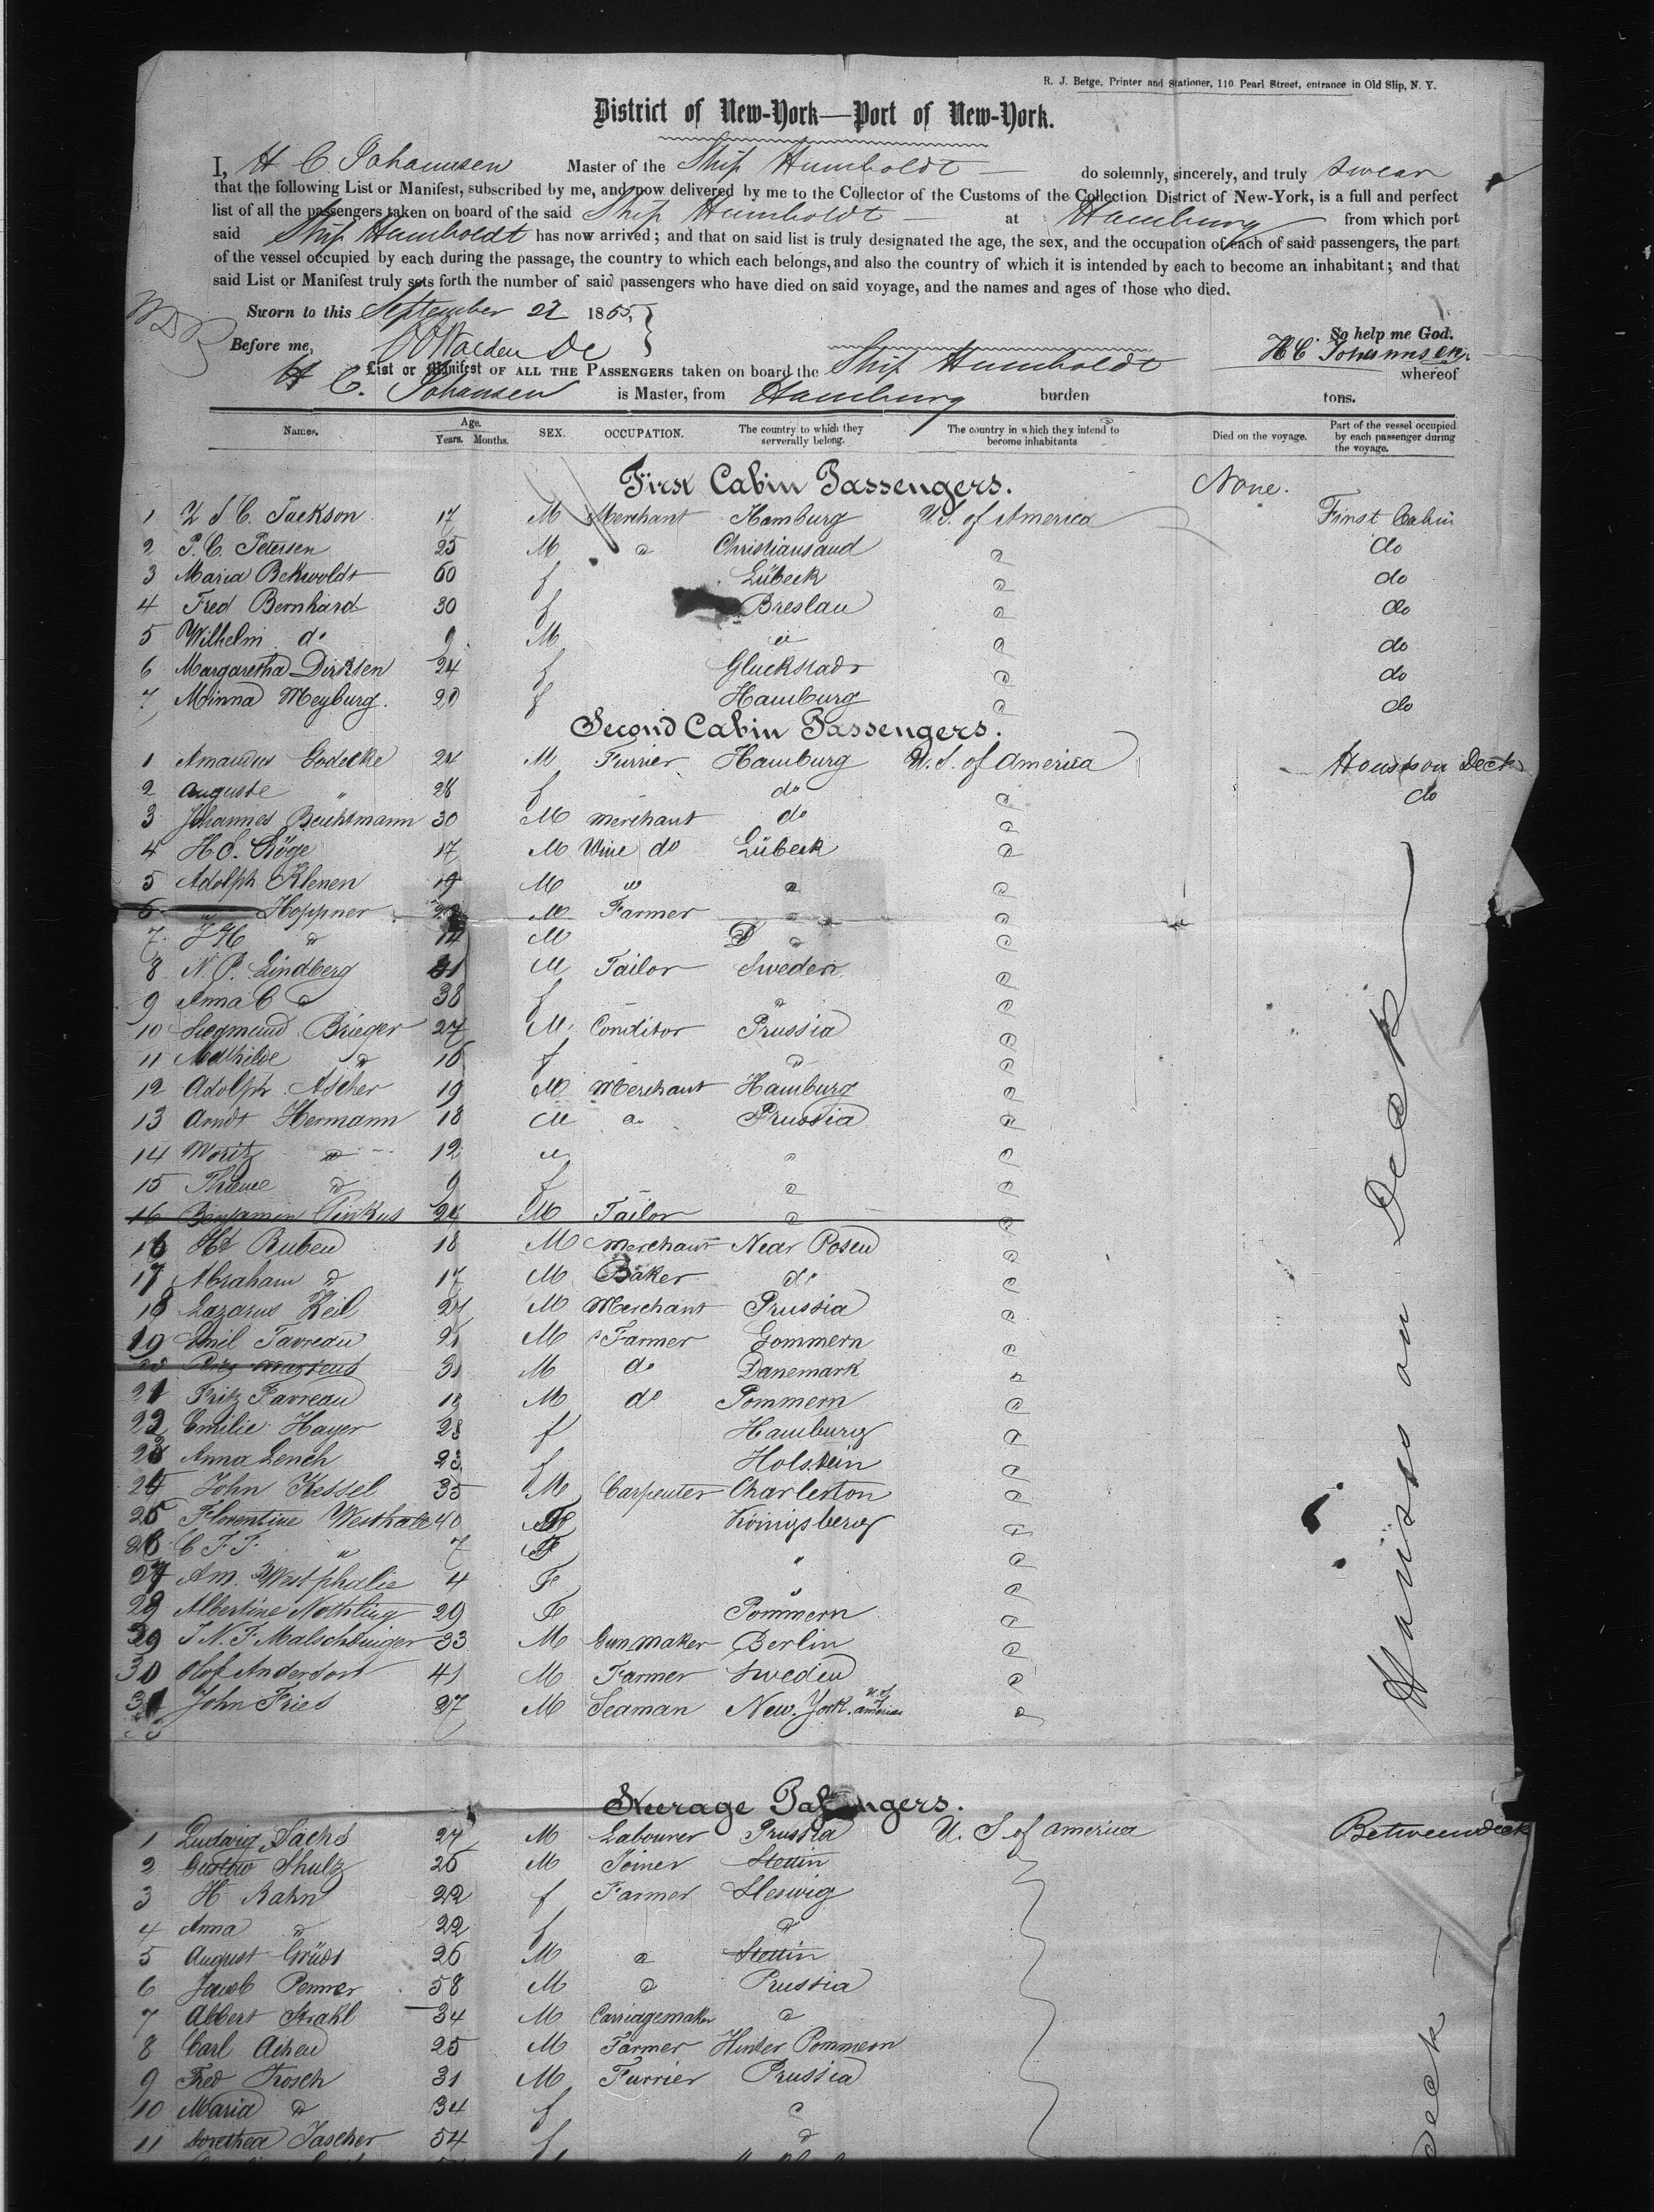 R. J. Betge, Printer and Stationer, 110 Pearl Street, entrance in Old Slip, N. Y.
District of New-York—Port of New-York.
I, H C Johannsen Master of the Ship Humboldt — do solemnly, sincerely, and truly swear
that the following List or Manifest, subscribed by me, and now delivered by me to the Collector of the Customs of the Collection District of New-York, is a full and perfect
list of all the passengers taken on board of the said Ship Humboldt — at Hamburg from which port
said Ship Humboldt has now arrived; and that on said list is truly designated the age, the sex, and the occupation of each of said passengers, the part
of the vessel occupied by each during the passage, the country to which each belongs, and also the country of which it is intended by each to become an inhabitant; and that
said List or Manifest truly sets forth the number of said passengers who have died on said voyage, and the names and ages of those who died.
Sworn to this September 22 1865,
So help me God.
Before me,
H C. Johannsen
List or Manifest OF ALL THE PASSENGERS taken on board the Ship Humboldt whereof
H C. Johansen is Master, from Hamburg burden tons.
Names. Age. Years. Months. SEX. OCCUPATION. The country to which they serverally belong. The country in which they intend to become inhabitants Died on the voyage. Part of the vessel occupied by each passenger during the voyage.
First Cabin Passengers. None.
1 C. Jackson 17 M Merchant Hamburg U.S. of America First Cabin
2 P. C. Petersen 25 M " Christiansand " do
3 Maria Bekwoldt 60 f Lübeck " do
4 Fred Bernhard 30 f Breslau " do
5 Wilhelm do 9 M " " do
6 Margaretha Dirksen 24 f Gluckstadt " do
7 Minna Meyburg. 20 f Hamburg " do
Second Cabin Passengers.
1 Amandus Godecke 24 M Furrier Hamburg U.S. of America House on Deck
2 Auguste " 28 f do " do
3 Johannes Beuhtmann 30 M merchant do "
4 H. Röge 17 M Wine do Lübeck "
5 Adolph Klenen 19 M " " "
6 " Hoppner M Farmer " "
7 J H " 14 M " "
8 N. P. Lindberg 31 M Tailor Sweden "
9 Anna C " 38 f " "
10 Siegmund Brieger 27 M Conditor Prussia "
11 Mathilde " 16 f " "
12 Adolph Ascher 19 M Merchant Hamburg "
13 Arndt Hermann 18 M " Prussia "
14 Moritz " 12 M " "
15 " 9 f " "
16 Benjamin Pinkus 24 M Tailor " "
16 Ruben 18 M merchant Near Posen "
17 Abraham " 17 M Baker do "
18 Lazarus Keil 21 M Merchant Prussia "
19 Emil Favreau 21 M Farmer Pommern "
20 Martens 31 M do Danemark "
21 Fritz Favreau 18 M do Pommern "
22 Emilie Hayer 28 f Hamburg "
23 Anna Lench 23 f Holstein "
24 John Kessel 35 M Carpenter Charleston "
25 Florentine Westhale 40 F Königsberg "
26 C F. F. " 7 F "
27 Am. Westphalie 4 F " "
28 Albertine Nothling 29 F Pommern "
29 J N. F. Malschdinger 33 M Gun maker Berlin "
30 Olof Anderson 41 M Farmer Sweden "
31 John Fries 27 M Seaman New. York. U.S. of America "
Houses on Deck
Steerage Passengers.
1 Ludwig Sachs 27 M Labourer Prussia U. S of America Between deck
2 Gustav Shulz 25 M Joiner Stettin
3 H Rahn 22 f Farmer Sleswig
4 Anna " 22 f "
5 August Grüdt 26 M " Stettin
6 Jacob Penner 58 M " Prussia
7 Albert Strahl 34 M Carriagemaker "
8 Carl 25 M Farmer Hinter Pommern
9 Fred Trosch 31 M Furrier Prussia
10 Maria " 34 f "
11 Dorethea Tascher 54 f "